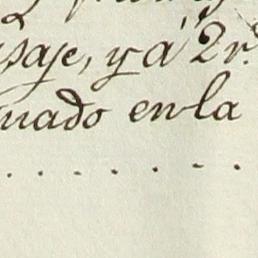 saje, y á 2 r.
uado en la
. . . . . . .